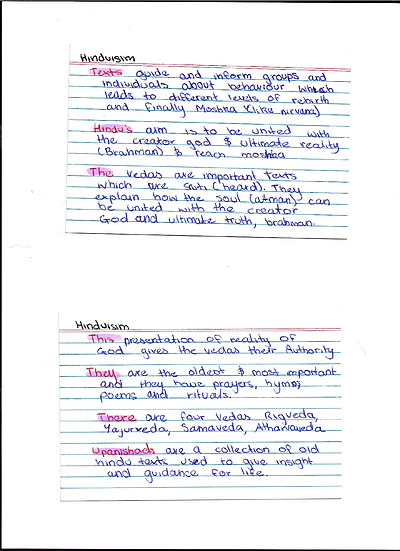 Hinduisim
Texts guide and inform groups and
individuals about behaviour which
leads to different levels of rebirth
and finally Moshka (like nirvana)
Hindu's aim is to be united with
the creator god & ultimate reality
(Brahman) & reach moshka
The vedas are important texts
which are sruti (heard). They
explain how the soul (atman) can
be united with the creator
God and ultimate truth, brahman.
Hinduisim
This presentation of reality of
God gives the vedas their Authority
They are the oldest & most important
and they have prayers, hymns
poems and rituals.
There are four vedas Rigveda,
Yajurveda, Samaveda, Atharvaveda
Upanishads are a collection of old
hindu texts used to give insight
and guidance for life.